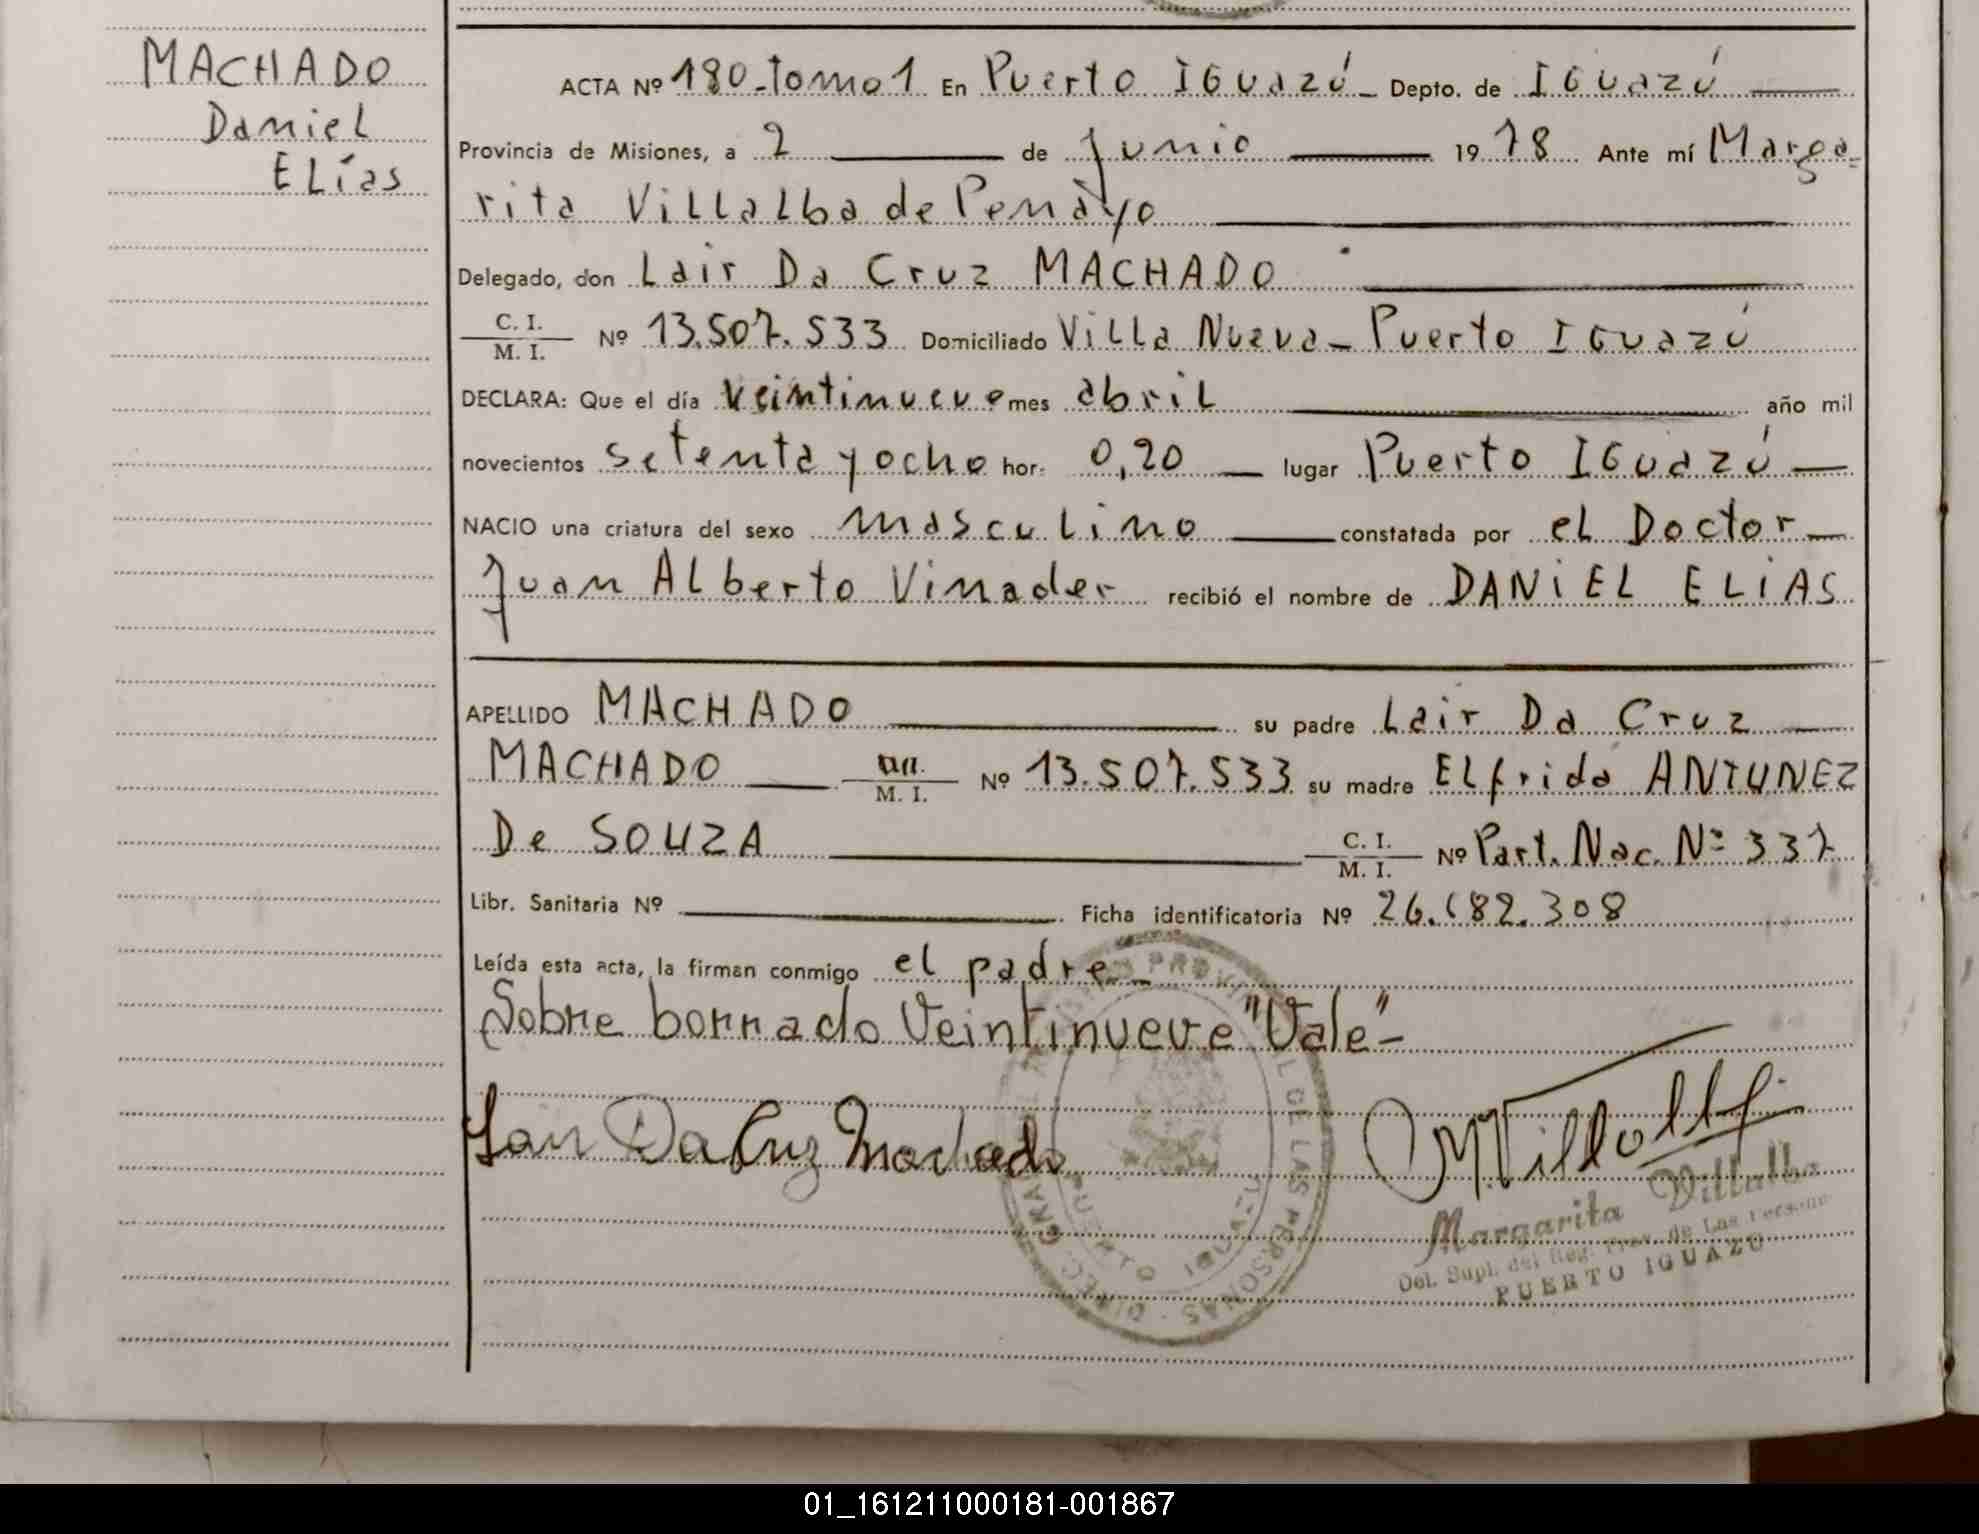 MACHADO
Daniel
Elías
ACTA Nº 180-Tomo 1 En Puerto Iguazú - Depto. de Iguazú
Provincia de Misiones, a 2 de Junio 1978 Ante mí Marga-
rita Villalba de Penayo
Delegado, don Lair Da Cruz MACHADO
C. I.
M. I. Nº 13.507.533 Domiciliado Villa Nueva - Puerto Iguazú
DECLARA: Que el día veintinueve mes abril año mil
novecientos setenta y ocho hor: 0,20 lugar Puerto Iguazú
NACIO una criatura del sexo masculino constatada por el Doctor
Juan Alberto Vinader recibió el nombre de DANIEL ELIAS
APELLIDO MACHADO su padre Lair Da Cruz
MACHADO M. I. Nº 13.507.533 su madre Elfrida ANTUNEZ
De SOUZA C. I. M. I. Nº Part. Nac. Nº 337
Libr. Sanitaria Nº Ficha identificatoria Nº 26.682.308
Leída esta acta, la firman conmigo el padre -
Sobre borrado Veintinueve "Vale" -
Lair Da Cruz Machado
MVillalba
Margarita Villalba
Del. Supl. del Reg. Prov. de Las Personas
PUERTO IGUAZU
DE LAS PERSONAS
01_161211000181-001867